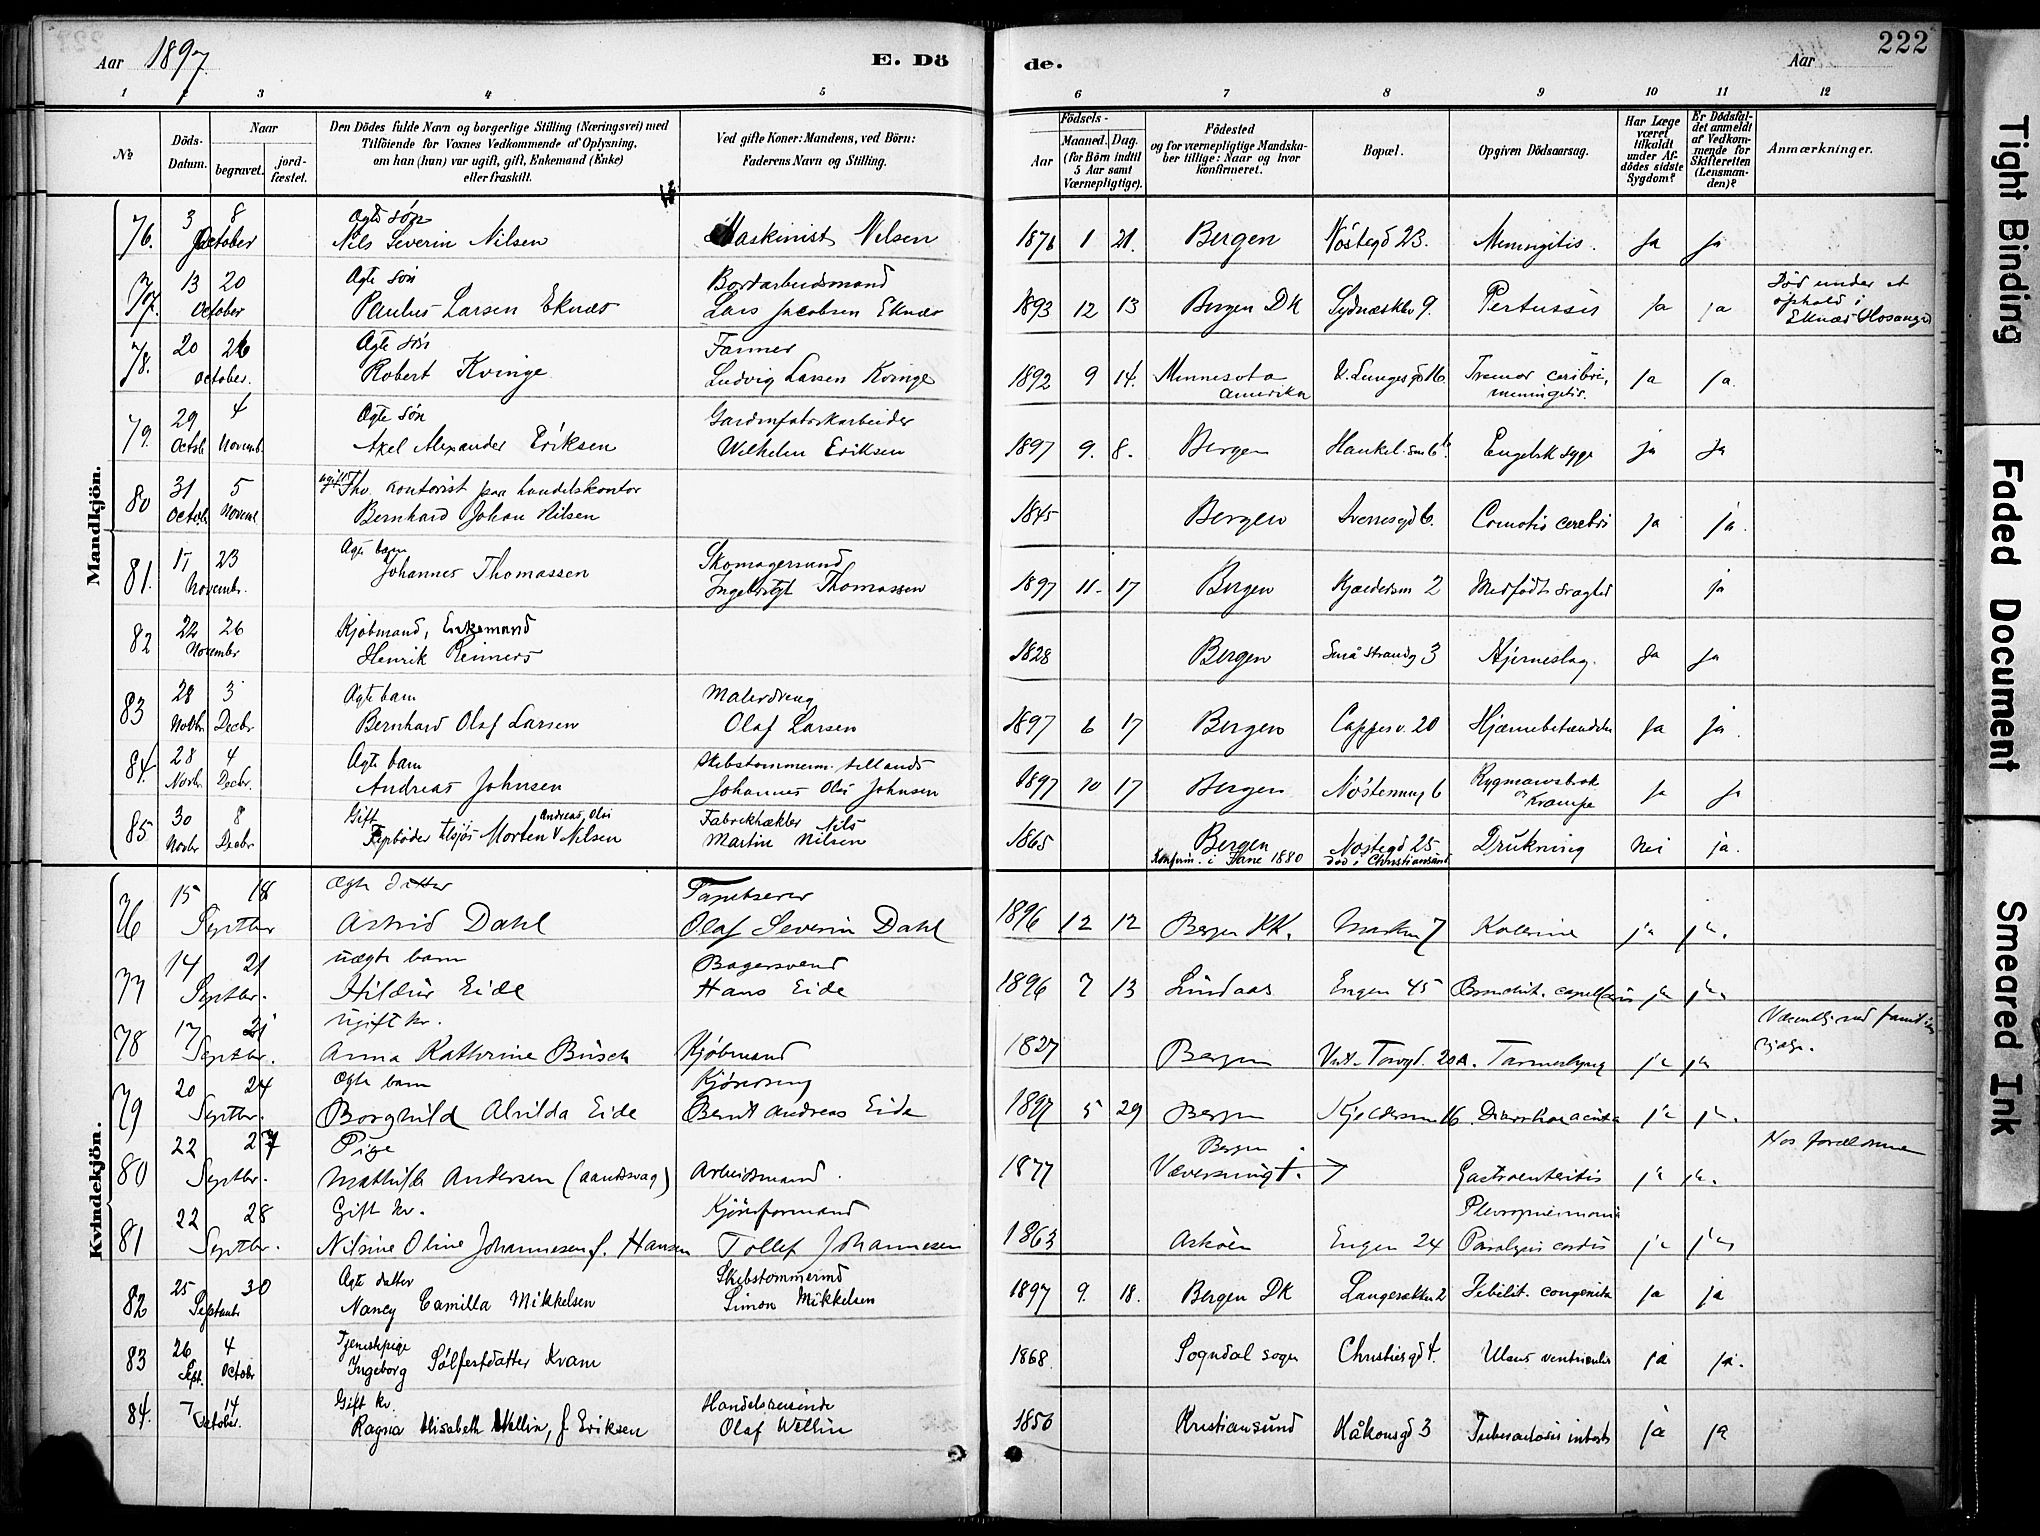 Aar 1897. E. Dö de. Aar 222
1 2 3 4 5 6 7 8 9 10 11 12
№
Döds-Datum.
Naar
begravet.
jord-fæstet.
Den Dödes fulde Navn og borgerlige Stilling (Næringsvei) med
Tilföiende for Voxnes Vedkommende af Oplysning,
om han (hun) var ugift, gift, Enkemand (Enke)
eller fraskilt.
Ved gifte Koner: Mandens, ved Börn:
Faderens Navn og Stilling.
Födsels-
Aar
Maaned. Dag.
(for Börn indtil
5 Aar samt
Værnepligtige).
Födested
og for værnepligtige Mandska-
ber tillige: Naar og hvor
konfirmeret.
Bopæl.
Opgiven Dödsaarsag.
Har Læge
været
tilkaldt
under Af-
dödes sidste
Sygdom?
Er Dödsfal-
det anmeldt
af Vedkom-
mende for
Skifteretten
(Lensman-
den)?
Anmærkninger.
Mandkjön.
76. 3 8 October Ægte søn
Nils Severin Nilsen Maskinist Nilsen 1876 1 21. Bergen Nöstegd 23. Meningitis. Ja Ja
77. 13 20 October Ægte søn Bortarbeidsmand
Paulus Larsen Eknæs Lars Jacobsen Eknæs 1893 12 13 Bergen DK Sydnæsklev 9. Pertussis Ja ja Død under et
ophold i
Eknæs Hosanger
78. 20 26 October. Ægte søn Farmer
Robert Kvinge Ludvig Larsen Kvinge 1892 9 14. Minnesota
Amerika Tremor cerebri,
meningitis. Ja Ja.
79. 29 Octob 4 Novemb. Ægte søn Gardinfabrikarbeider
Axel Alexander Eriksen Wilhelm Eriksen 1897 9. 8. Bergen Engelsk syge ja Ja
80 31 Octob 5 Novemb ugift Thv. kontorist paa handelskontor
Bernhard Johan Nilsen 1845 Bergen Sverresgd 6. Comotio cerebri ja ja.
81. 17 23 Novembr. Ægte barn Skomagersvend
Johannes Thomassen Ingebrigt Thomassen 1897 11- 17 Bergen Kjeldersm 2 Medfødt svaghed ja
82 22 26 November Kjøbmand, Enkemand
Henrik Reimers 1828 Bergen Små strandg 3 Hjerneslag. Ja Ja
83 28 Novbr 3 Decbr Ægte barn Malersvend
Bernhard Olaf Larsen Olaf Larsen 1897 6 17 Bergen Cappesv. 20 Hjærnebetændelse Ja ja.
84. 28 Novbr 4 Decbr. Ægte barn Skibstømmerm. tillands
Andreas Johnsen Johannes Olai Johnsen 1897 10 17 Bergen Nöstesmug 6 Rygmarvsbrok
og Krampe Ja Ja
85. 30 Novbr 8 Decbr Gift Andreas Olai Fabrikhækler Nils
tilsjøs Morten Nilsen Martin Nilsen 1865 Bergen
Konfirm. i Fane 1880 Nöstegd 25
død i Christiansund Drukning Nei ja.
Kvindekjön.
76 15 18 Septbr Ægte datter Tapetserer
Astrid Dahl Olaf Severin Dahl 1896 12 12 Bergen KK. Marken 7 Kolerine ja ja.
77 14 21 Septbr. uægte barn Bagersvend
Hildur Eide Hans Eide 1896 7 13 Lindaas Engen 45 Bronchit. capillaris ja ja
78 17 21 Septbr. Ugift kv.
Anna Kathrine Büsch Kjøbmand 1827 Bergen Vestr. Torvgd. 20A. ja ja
79 20 24 Septbr. Ægte barn
Borghild Alvilda Eide Bernt Andreas Eide 1897 5 29 Bergen Kjeldersm 16. Diarrhoe acuta ja ja.
80 22 27 Septbr. Pige
Mathilde Andersen (aandssvag) Arbeidsmand. 1877 Bergen
Væversmug 7. Gastroenteritis ja ja. Hos forældrene
81 22 28 Septbr. Gift kv. Kjøreformand
Nilsine Oline Johannesen f. Hansen Tollef Johannesen 1863 Askøen Engen 24 Pleuropneumonia
Paralysis cordis ja ja
82 25 30 Septembr Ægte datter Skibstømmermd
Nancy Camilla Mikkelsen Simon Mikkelsen 1897 9. 18. Bergen DK Debilit. congenita Ja ja
83 26 Sept. 4 Octobr Tjenestepige
Ingeborg Sølfestdatter Kvam 1868. Sogndal sogn Christiesgd 4. Ulcus ventriculi ja ja.
84. 7 14 October. Gift kv. Handelsreisende
Ragna Elisabeth Wellin, f. Eriksen Olaf Wellin 1850 Kristiansund Håkonsgd 3 Tuberculosis intest. ja ja
Tight Binding
Faded Document
Smeared Ink